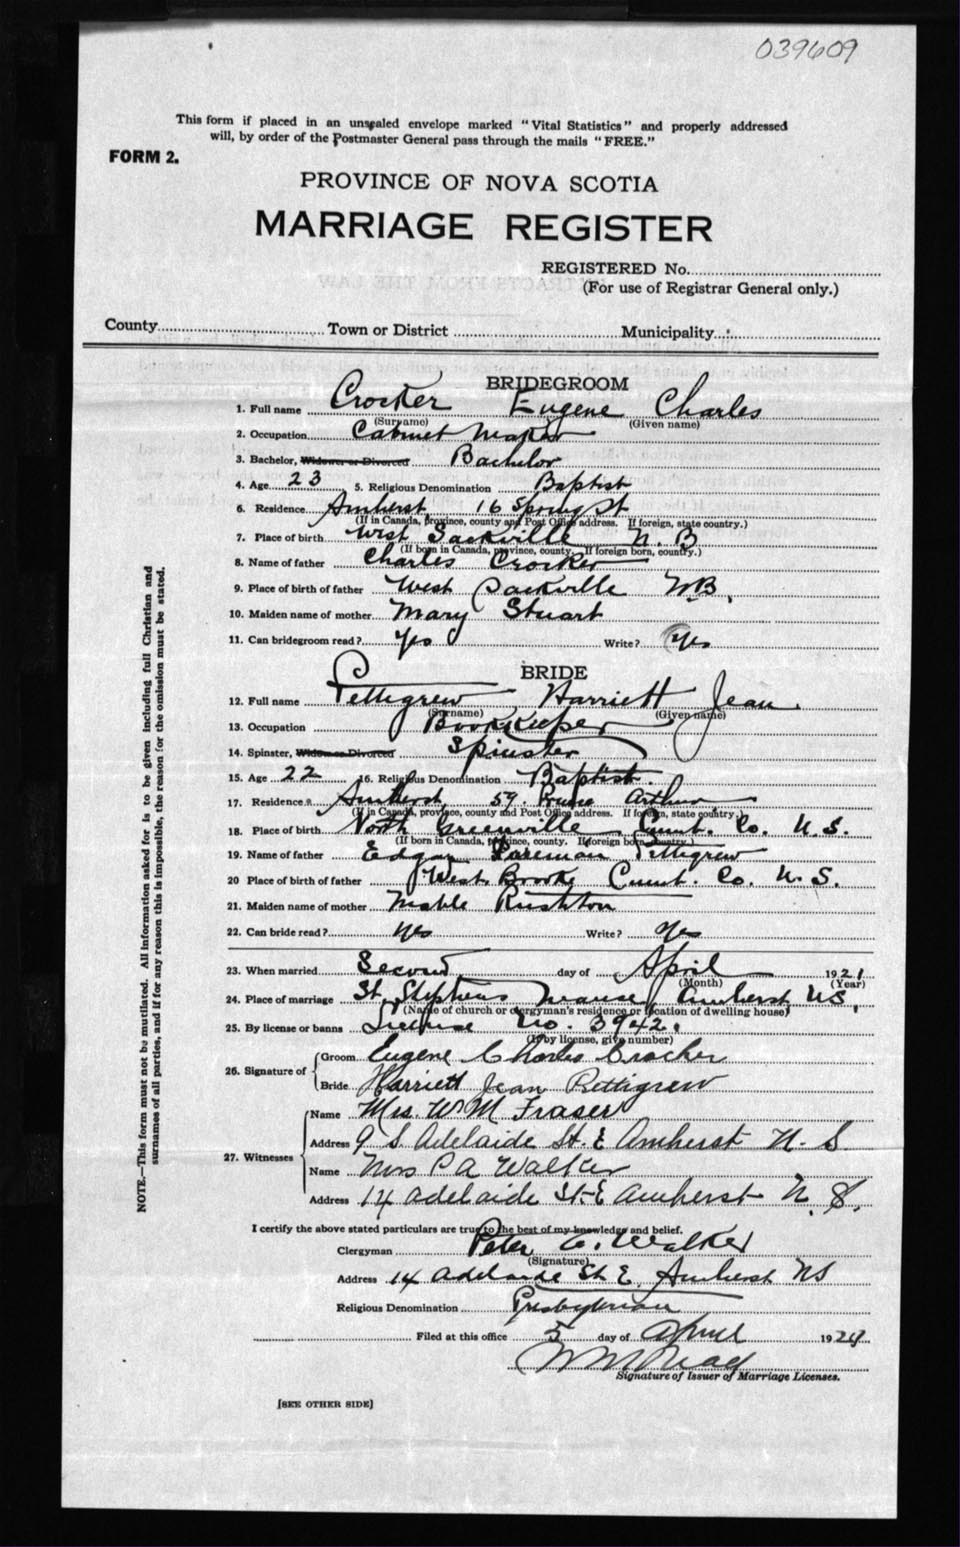 039609
This form if placed in an unsealed envelope marked "Vital Statistics" and properly addressed
will, by order of the Postmaster General pass through the mails "FREE."
FORM 2.
PROVINCE OF NOVA SCOTIA
MARRIAGE REGISTER
REGISTERED No.
(For use of Registrar General only.)
County Town or District Municipality
BRIDEGROOM
1. Full name Crocker Eugene Charles
(Surname) (Given name)
2. Occupation Cabinet Maker
3. Bachelor, Widower or Divorced Bachelor
4. Age 23 5. Religious Denomination Baptist
6. Residence Amherst 16 Spring St
(If in Canada, province, county and Post Office address. If foreign, state country.)
7. Place of birth West Sackville N.B
(If born in Canada, province, county. If foreign born, country.)
8. Name of father Charles Crocker
9. Place of birth of father West Sackville N.B.
10. Maiden name of mother Mary Stuart
11. Can bridegroom read? Yes Write? Yes
BRIDE
12. Full name Pettigrew Harriett Jean
(Surname) (Given name)
13. Occupation Bookkeeper
14. Spinster, Widow or Divorced Spinster
15. Age 22 16. Religious Denomination Baptist.
17. Residence Amherst 59. Arthur
(If in Canada, province, county and Post Office address. If foreign, state country.)
18. Place of birth North Greenville Cumb. Co. N.S.
(If born in Canada, province, county. If foreign born, country.)
19. Name of father Edgar Pettigrew
20 Place of birth of father West Brooke Cumb. Co. N.S.
21. Maiden name of mother Mable Rushton
22. Can bride read? Yes Write? Yes
23. When married Second day of April 1921
(Month) (Year)
24. Place of marriage St. Stephens Manse, Amherst, NS,
(Name of church or clergyman's residence or location of dwelling house)
25. By license or banns License No. 3942.
(If by license, give number)
26. Signature of Groom Eugene Charles Crocker
Bride Harriett Jean Pettigrew
27. Witnesses Name Mrs. W M Fraser
Address 9 S. Adelaide St. E Amherst N. S
Name Mrs P A Walker
Address 14 Adelaide St. E Amherst N. S.
I certify the above stated particulars are true to the best of my knowledge and belief.
Clergyman Peter C. Walker
(Signature)
Address 14 Adelaide St E. Amherst NS
Religious Denomination Presbyterian
Filed at this office 5 day of April 1921
Signature of Issuer of Marriage Licenses.
[SEE OTHER SIDE]
NOTE.—This form must not be mutilated. All information asked for is to be given including full Christian and
surnames of all parties, and if for any reason this is impossible, the reason for the omission must be stated.